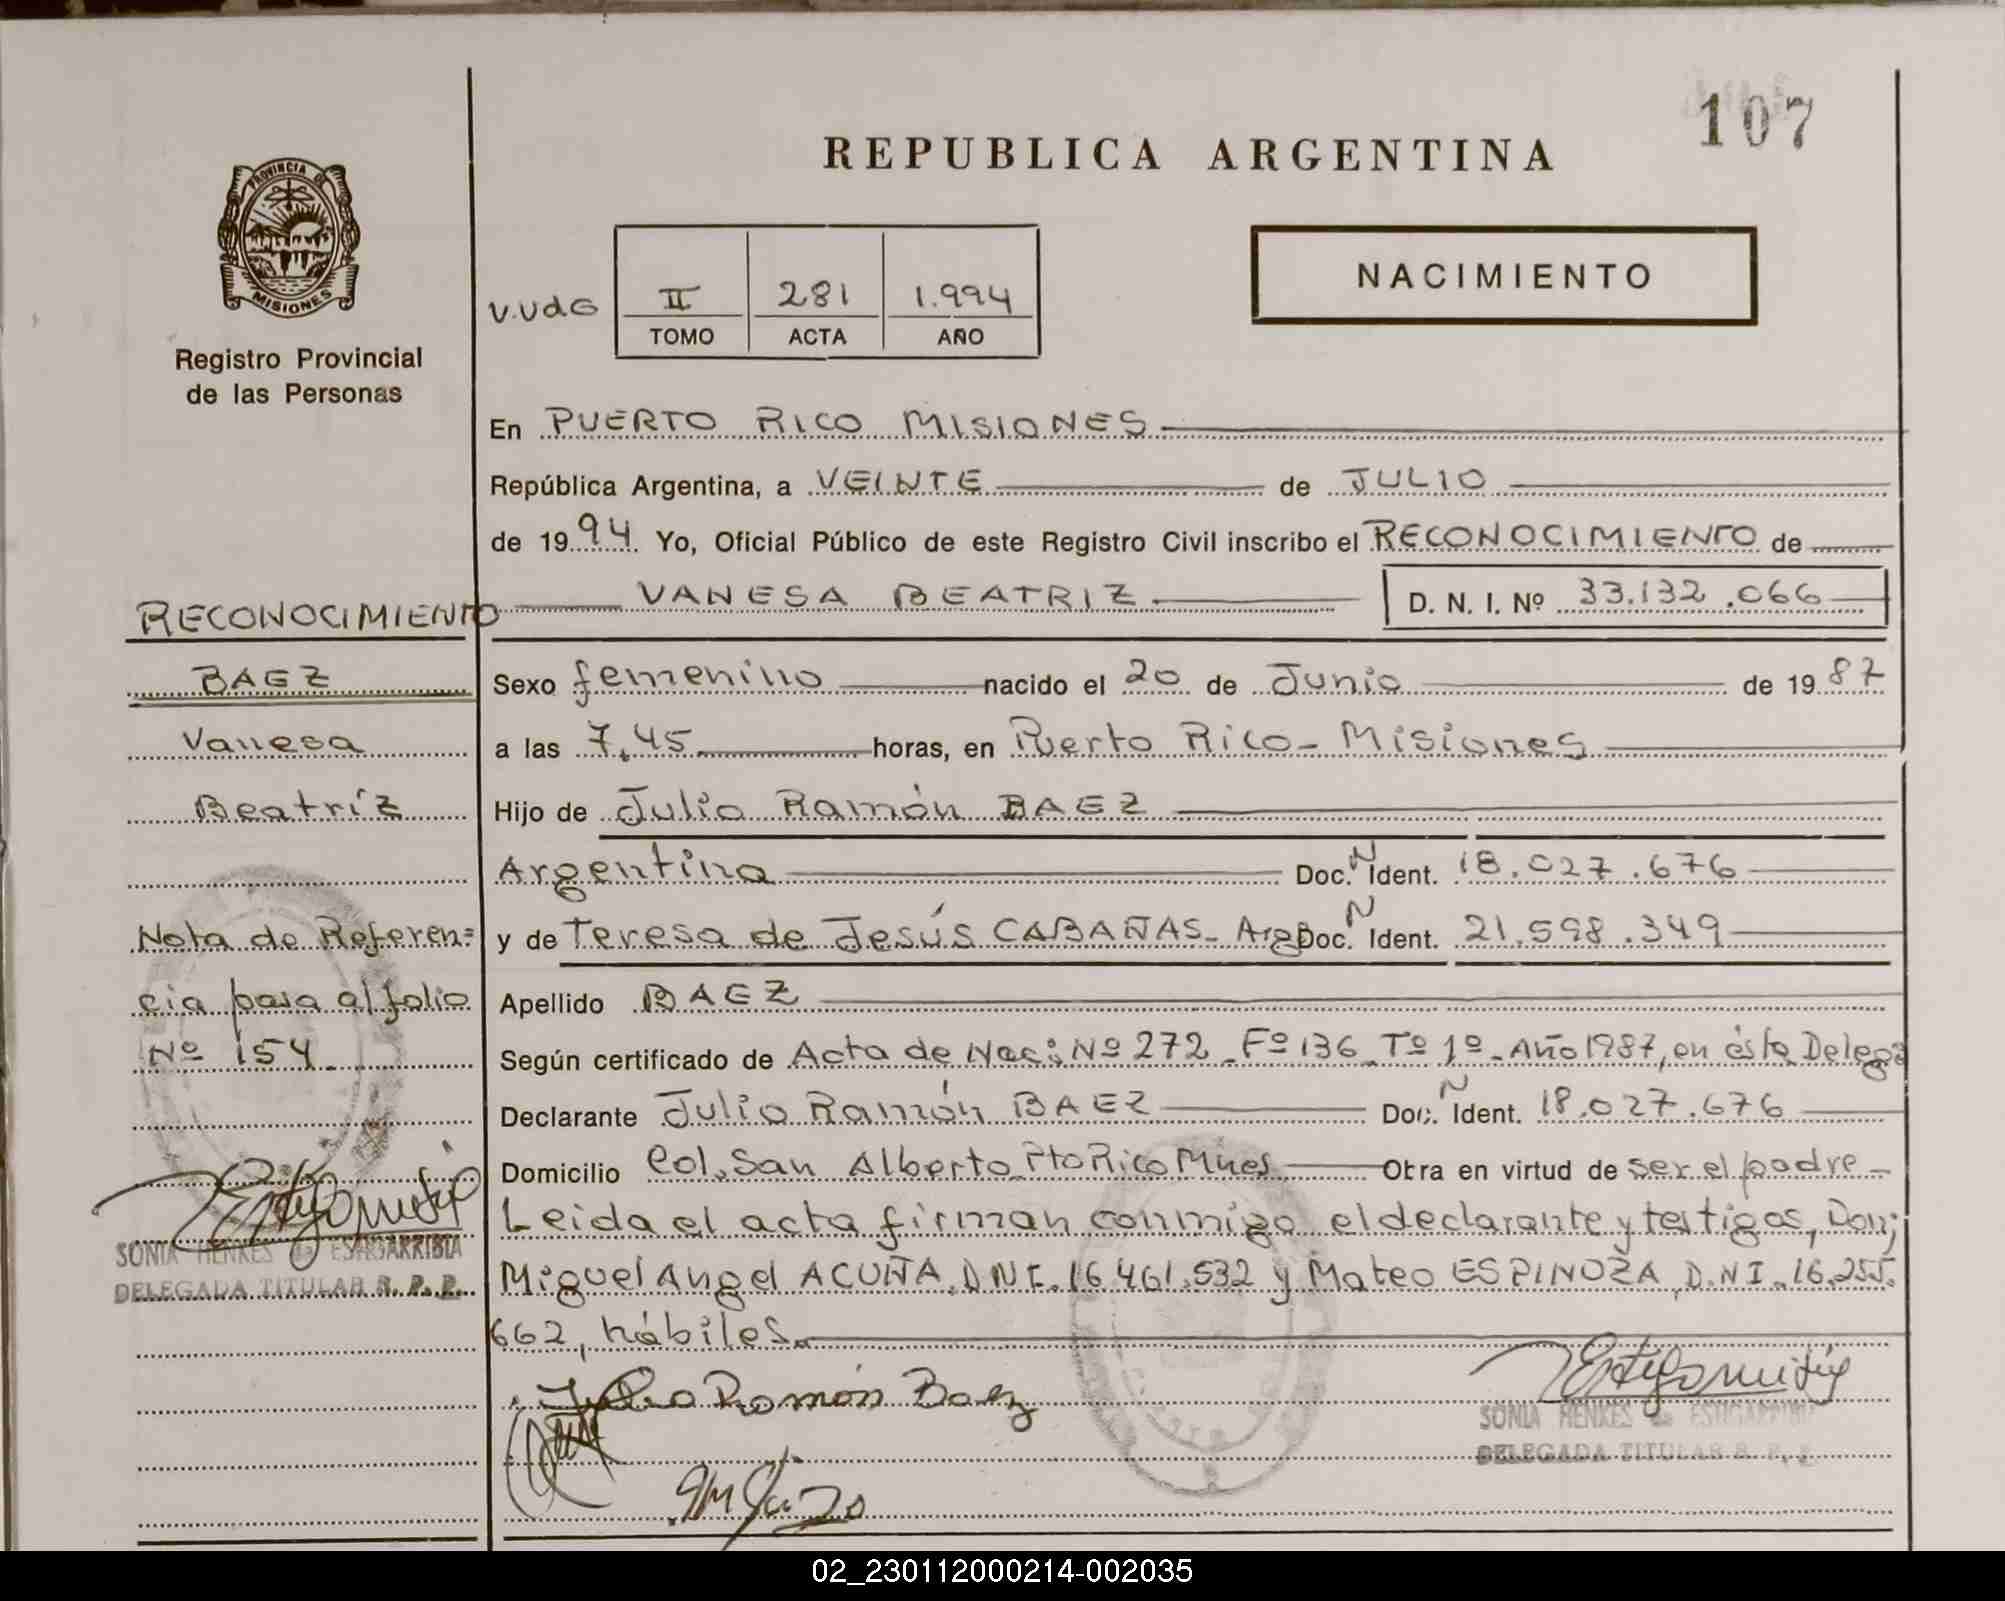 107
REPUBLICA ARGENTINA
PROVINCIA DE
MISIONES
Registro Provincial
de las Personas
V.VdG
II 281 1.994
TOMO ACTA AÑO
NACIMIENTO
En PUERTO RICO MISIONES
República Argentina, a VEINTE de JULIO
de 1994. Yo, Oficial Público de este Registro Civil inscribo el RECONOCIMIENTO de
VANESA BEATRIZ D. N. I. Nº 33.132.066
RECONOCIMIENTO
BAEZ
Vanesa
Beatríz
Nota de Referen=
cia para al folio
Nº 154
SONIA HENKES de ESTIGARRIBIA
DELEGADA TITULAR R. P. P.
Sexo femenino nacido el 20 de Junio de 1987
a las 7,45 horas, en Puerto Rico - Misiones
Hijo de Julio Ramón BAEZ
Argentino Doc. N Ident. 18.027.676
y de Teresa de Jesús CABAÑAS - Arg Doc. N Ident. 21.598.349
Apellido BAEZ
Según certificado de Acta de Nac: Nº 272 - Fº 136 - Tº 1º - Año 1987, en ésta Deleg
Declarante Julio Ramón BAEZ Doc. N Ident. 18.027.676
Domicilio Col. San Alberto Pto Rico Mnes Obra en virtud de ser el padre
Leida el acta firman conmigo el declarante y testigos, Don:
Miguel Angel ACUÑA, DNI. 16.461.532 y Mateo ESPINOZA D.N I. 16.255.
662, hábiles.
Julio Ramón Baez
SONIA HENKES de ESTIGARRIBIA
DELEGADA TITULAR R. P. P.
02_230112000214-002035